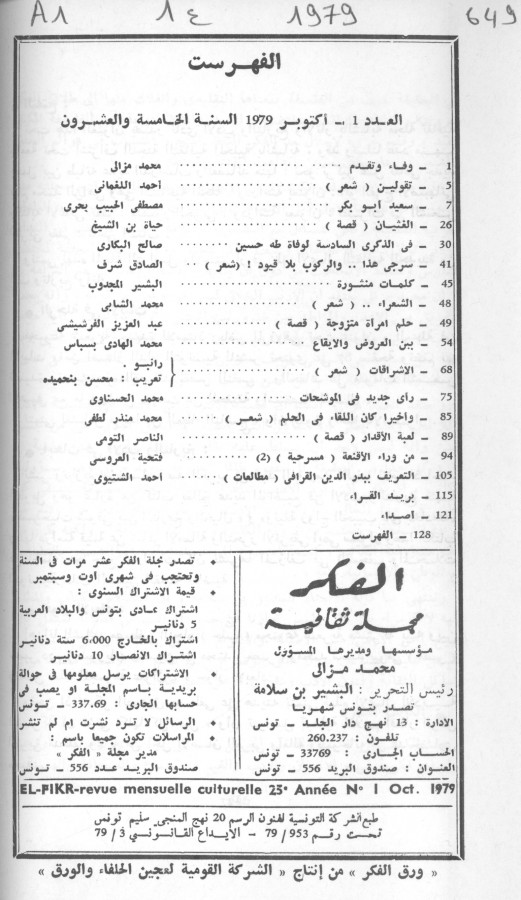 A1 1ع 1979 649
الفهرست
العدد 1 - أكتوبر 1979 السنة الخامسة والعشرون
1 - وفاء وتقدم ........ محمد مزالي
5 - تقولين ( شعر ) ........ أحمد اللغماني
7 - سعيد أبو بكر ........ مصطفى الحبيب بحرى
26 - الغثيان ( قصة ) ........ حياة بن الشيخ
30 - فى الذكرى السادسة لوفاة طه حسين ........ صالح البكارى
41 - سرجى هذا .. والركوب بلا قيود ! (شعر ) .. الصادق شرف
45 - كلمات منثورة ........ البشير المجدوب
48 - الشعراء .. ( شعر ) ........ محمد الشابى
49 - حلم امرأة متزوجة ( قصة ) ........ عبد العزيز الفرشيشى
54 - بين العروض والايقاع ........ محمد الهادى بسباس
68 - الاشراقات ( شعر ) ........ { رانبو .
تعريب : محسن بنحميده
75 - رأى جديد فى الموشحات ........ محمد الحسناوى
85 - وأخيرا كان اللقاء فى الحلم ( شعر ) ........ محمد منذر لطفى
89 - لعبة الأقدار ( قصة ) ........ الناصر التومى
94 - من وراء الأقنعة ( مسرحية ) (2) ........ فتحية العروسى
105 - التعريف ببدر الدين القرافى ( مطالعات ) ........ أحمد الشتيوى
115 - بريد القراء
121 - أصداء
128 - الفهرست
الفكر
مجلة ثقافية
مؤسسها ومديرها المسؤول
محمد مزالى
رئيس التحرير : البشير بن سلامة
تصدر بتونس شهريا
الادارة : 13 نهج دار الجلد - تونس
تلفون : 260.237
الحساب الجارى : 33769 - تونس
العنوان : صندوق البريد 556 - تونس
• تصدر مجلة الفكر عشر مرات فى السنة
وتحتجب فى شهرى أوت وسبتمبر
• قيمة الاشتراك السنوى :
اشتراك عادى بتونس والبلاد العربية
5 دنانير
اشتراك بالخارج 6,000 ستة دنانير
اشتراك الانصار 10 دنانير
• الاشتراكات يرسل معلومها فى حوالة
بريدية باسم المجلة او يصب فى
حسابها الجارى : 337.69 - تونس
• الرسائل لا ترد نشرت ام لم تنشر
• المراسلات تكون جميعا باسم :
مدير مجلة « الفكر »
صندوق البريد عدد 556 - تونس
EL-FIKR-revue mensuelle culturelle 25e Année N° 1 Oct. 1979
طبع الشركة التونسية لفنون الرسم 20 نهج المنجى سليم تونس
تحت رقم 953/ 79 - الايداع القانونى 3/ 79
« ورق الفكر » من إنتاج « الشركة القومية لعجين الحلفاء والورق »